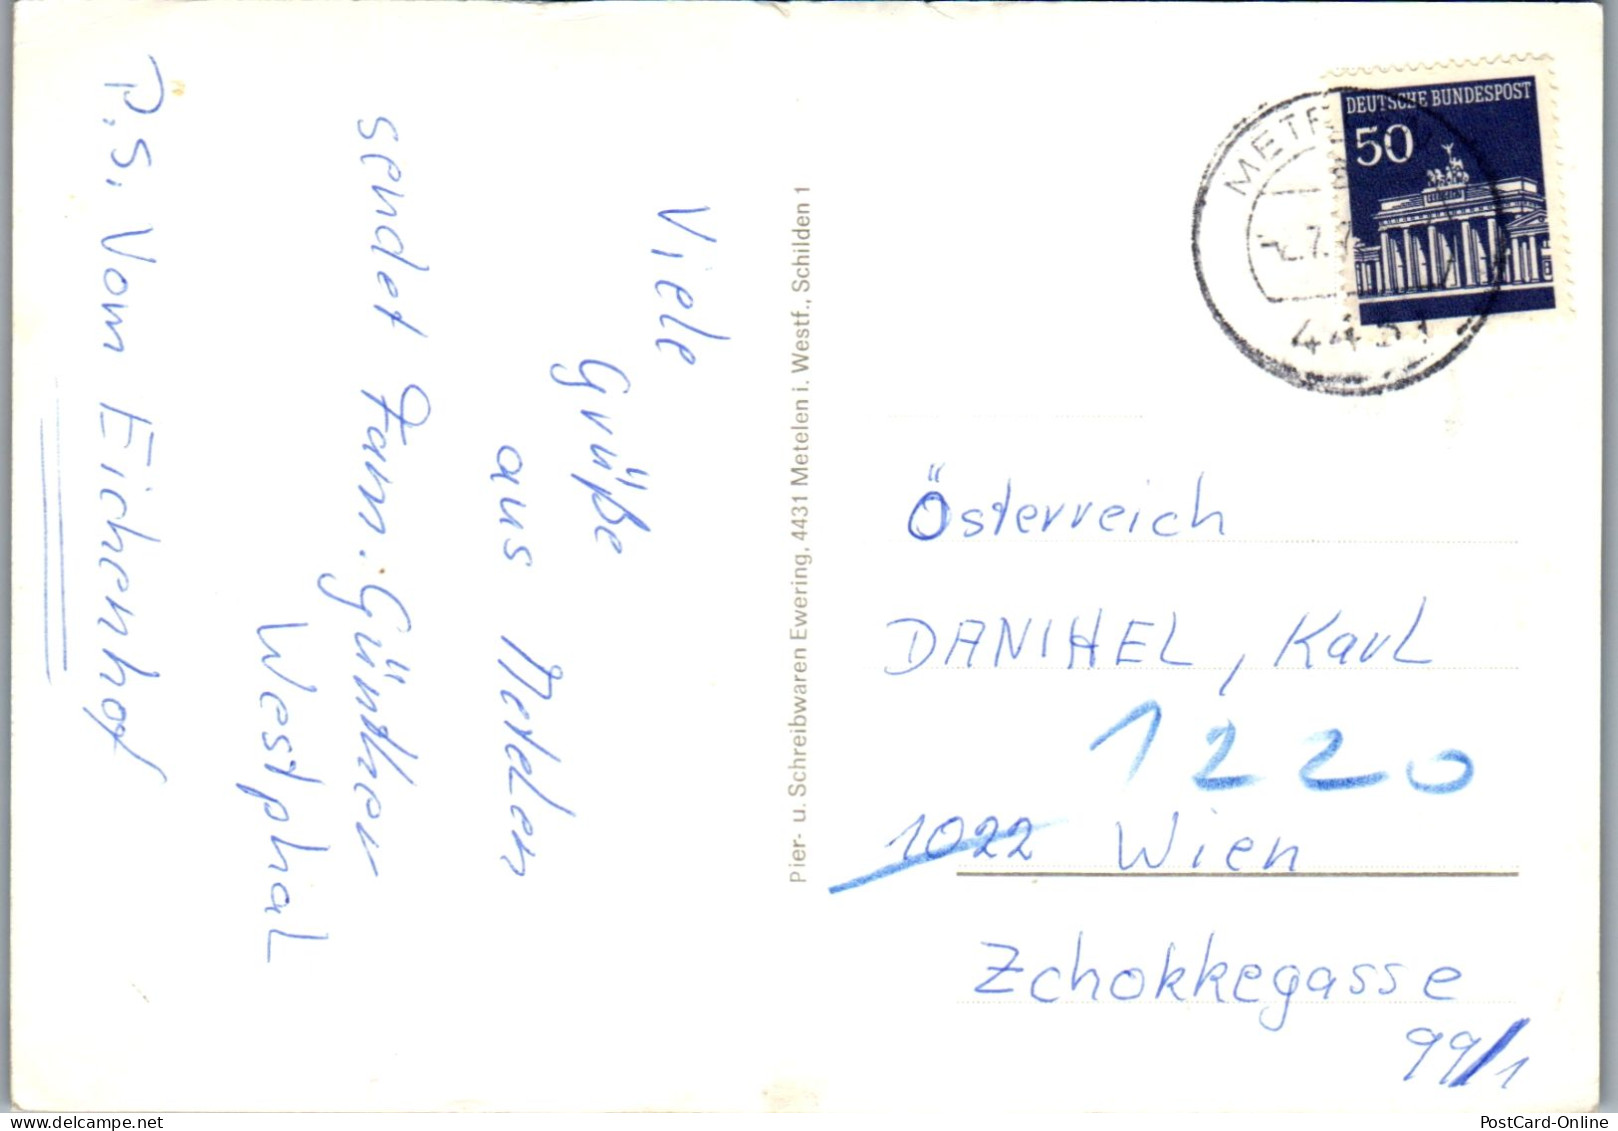 Viele
Grüße
aus Metelen
sendet Fam. Günther
Westphal
P.S. Vom Eichenhof
Pier- u. Schreibwaren Ewering, 4431 Metelen i. Westf., Schilden 1
DEUTSCHE BUNDESPOST
50
4431
Österreich
DANIHEL, Karl
1220
1022 Wien
Zchokkegasse
99/1
PostCard-Online